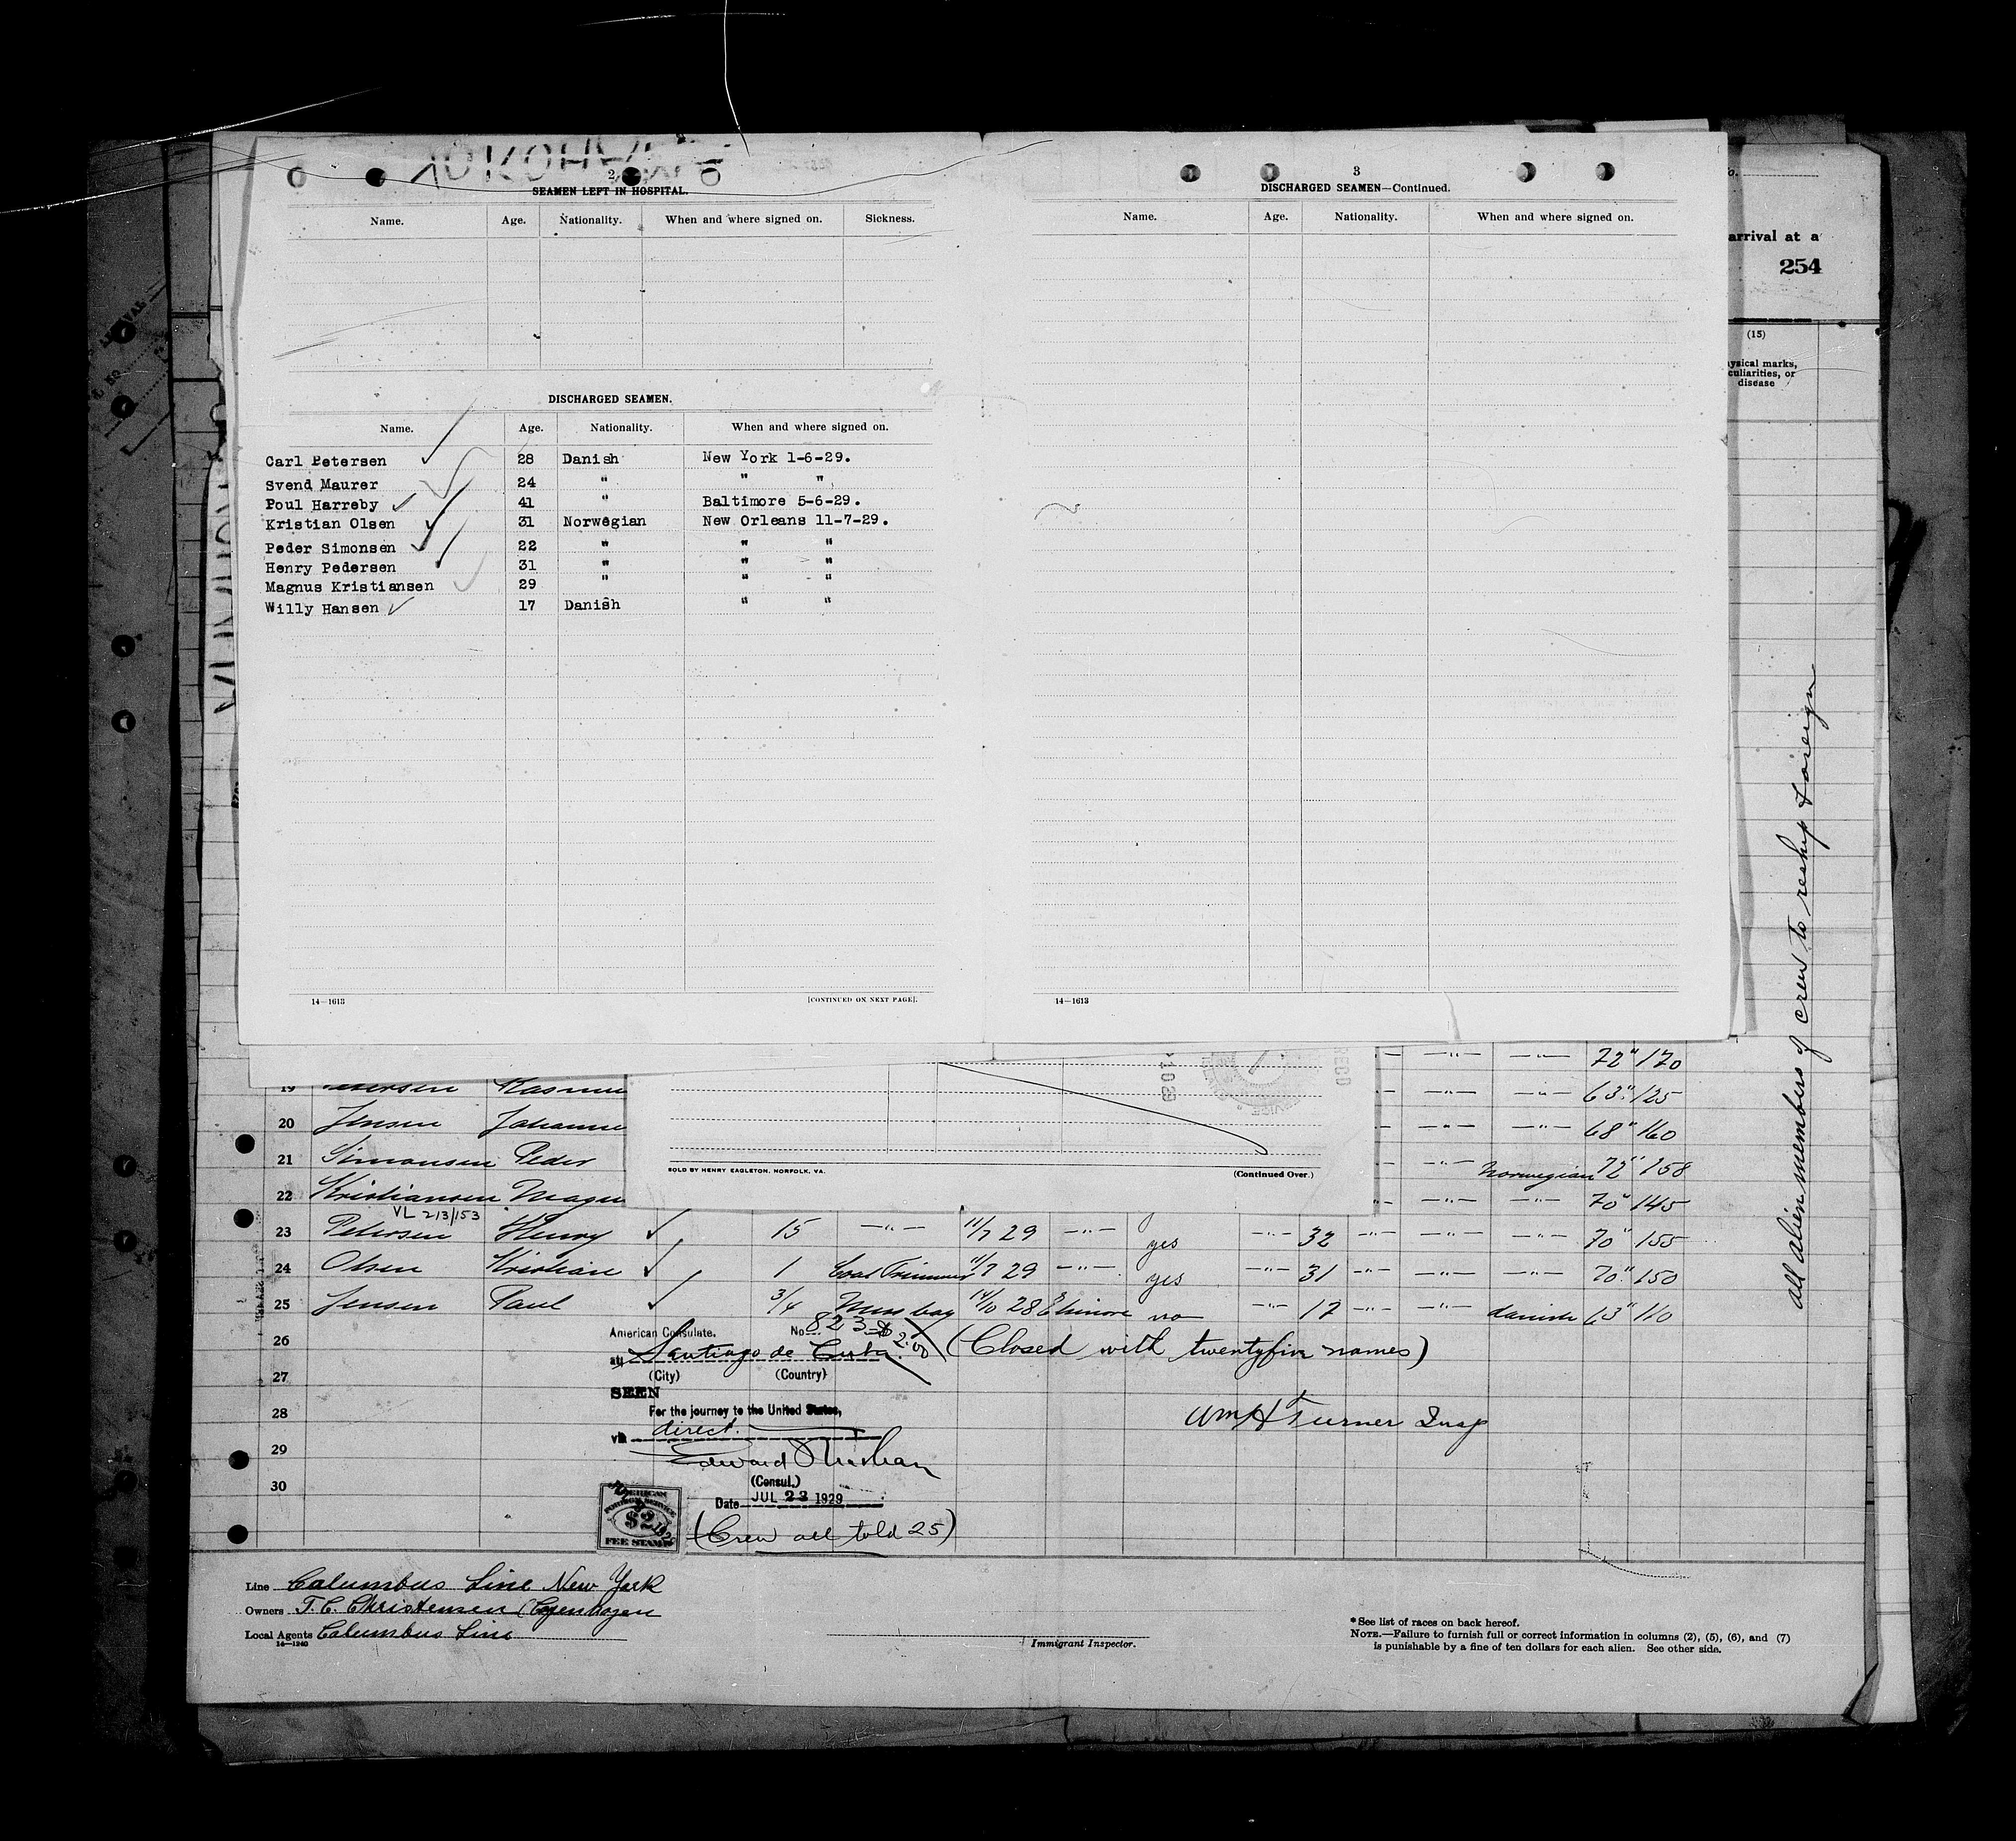 2
SEAMEN LEFT IN HOSPITAL.
Name. Age. Nationality. When and where signed on. Sickness.
DISCHARGED SEAMEN.
Name. Age. Nationality. When and where signed on.
Carl Petersen 28 Danish New York 1-6-29.
Svend Maurer 24 " " "
Poul Harreby 41 " Baltimore 5-6-29.
Kristian Olsen 31 Norwegian New Orleans 11-7-29.
Peder Simonsen 22 " " "
Henry Pedersen 31 " " "
Magnus Kristiansen 29 " " "
Willy Hansen 17 Danish " "
14—1613 [CONTINUED ON NEXT PAGE].
3
DISCHARGED SEAMEN—Continued.
Name. Age. Nationality. When and where signed on.
14—1613
arrival at a
254
(15)
ysical marks,
culiarities, or
disease
All alien members of crew to reship foreign
72" 170
19 Rasmu 63" 125
20 Jensen Johanne 68" 160
21 Simonsen Peder Norwegian 72" 158
22 Kristiansen Magnu 70" 145
SOLD BY HENRY EAGLETON, NORFOLK, VA. (Continued Over.)
REC'D
VL 213/153
23 Petersen Henry 15 —"— 11/7 29 —"— yes —"— 32 —"— —"— —"— 70" 155
24 Olsen Kristian 1 Coal Trimmer 11/7 29 —"— yes —"— 31 —"— —"— —"— 70" 150
25 Jensen Paul 3/4 Mess boy 14/10 28 Elsinore no —"— 17 —"— —"— danish 63" 110
26
27
28
29
30
American Consulate. No. 823
at Santiago de Cuba 2.00 (Closed with twentyfive names)
(City) (Country)
SEEN
For the journey to the United States,
via direct.
Wm H Turner Insp
Edward
(Consul.)
Date JUL 23 1929
AMERICAN
FOREIGN SERVICE
$2
FEE STAMP
(Crew all told 25)
Line Columbus Line New York
Owners T. C. Christensen Copenhagen
Local Agents Columbus Line
14—1240
Immigrant Inspector.
*See list of races on back hereof.
NOTE.—Failure to furnish full or correct information in columns (2), (5), (6), and (7)
is punishable by a fine of ten dollars for each alien. See other side.